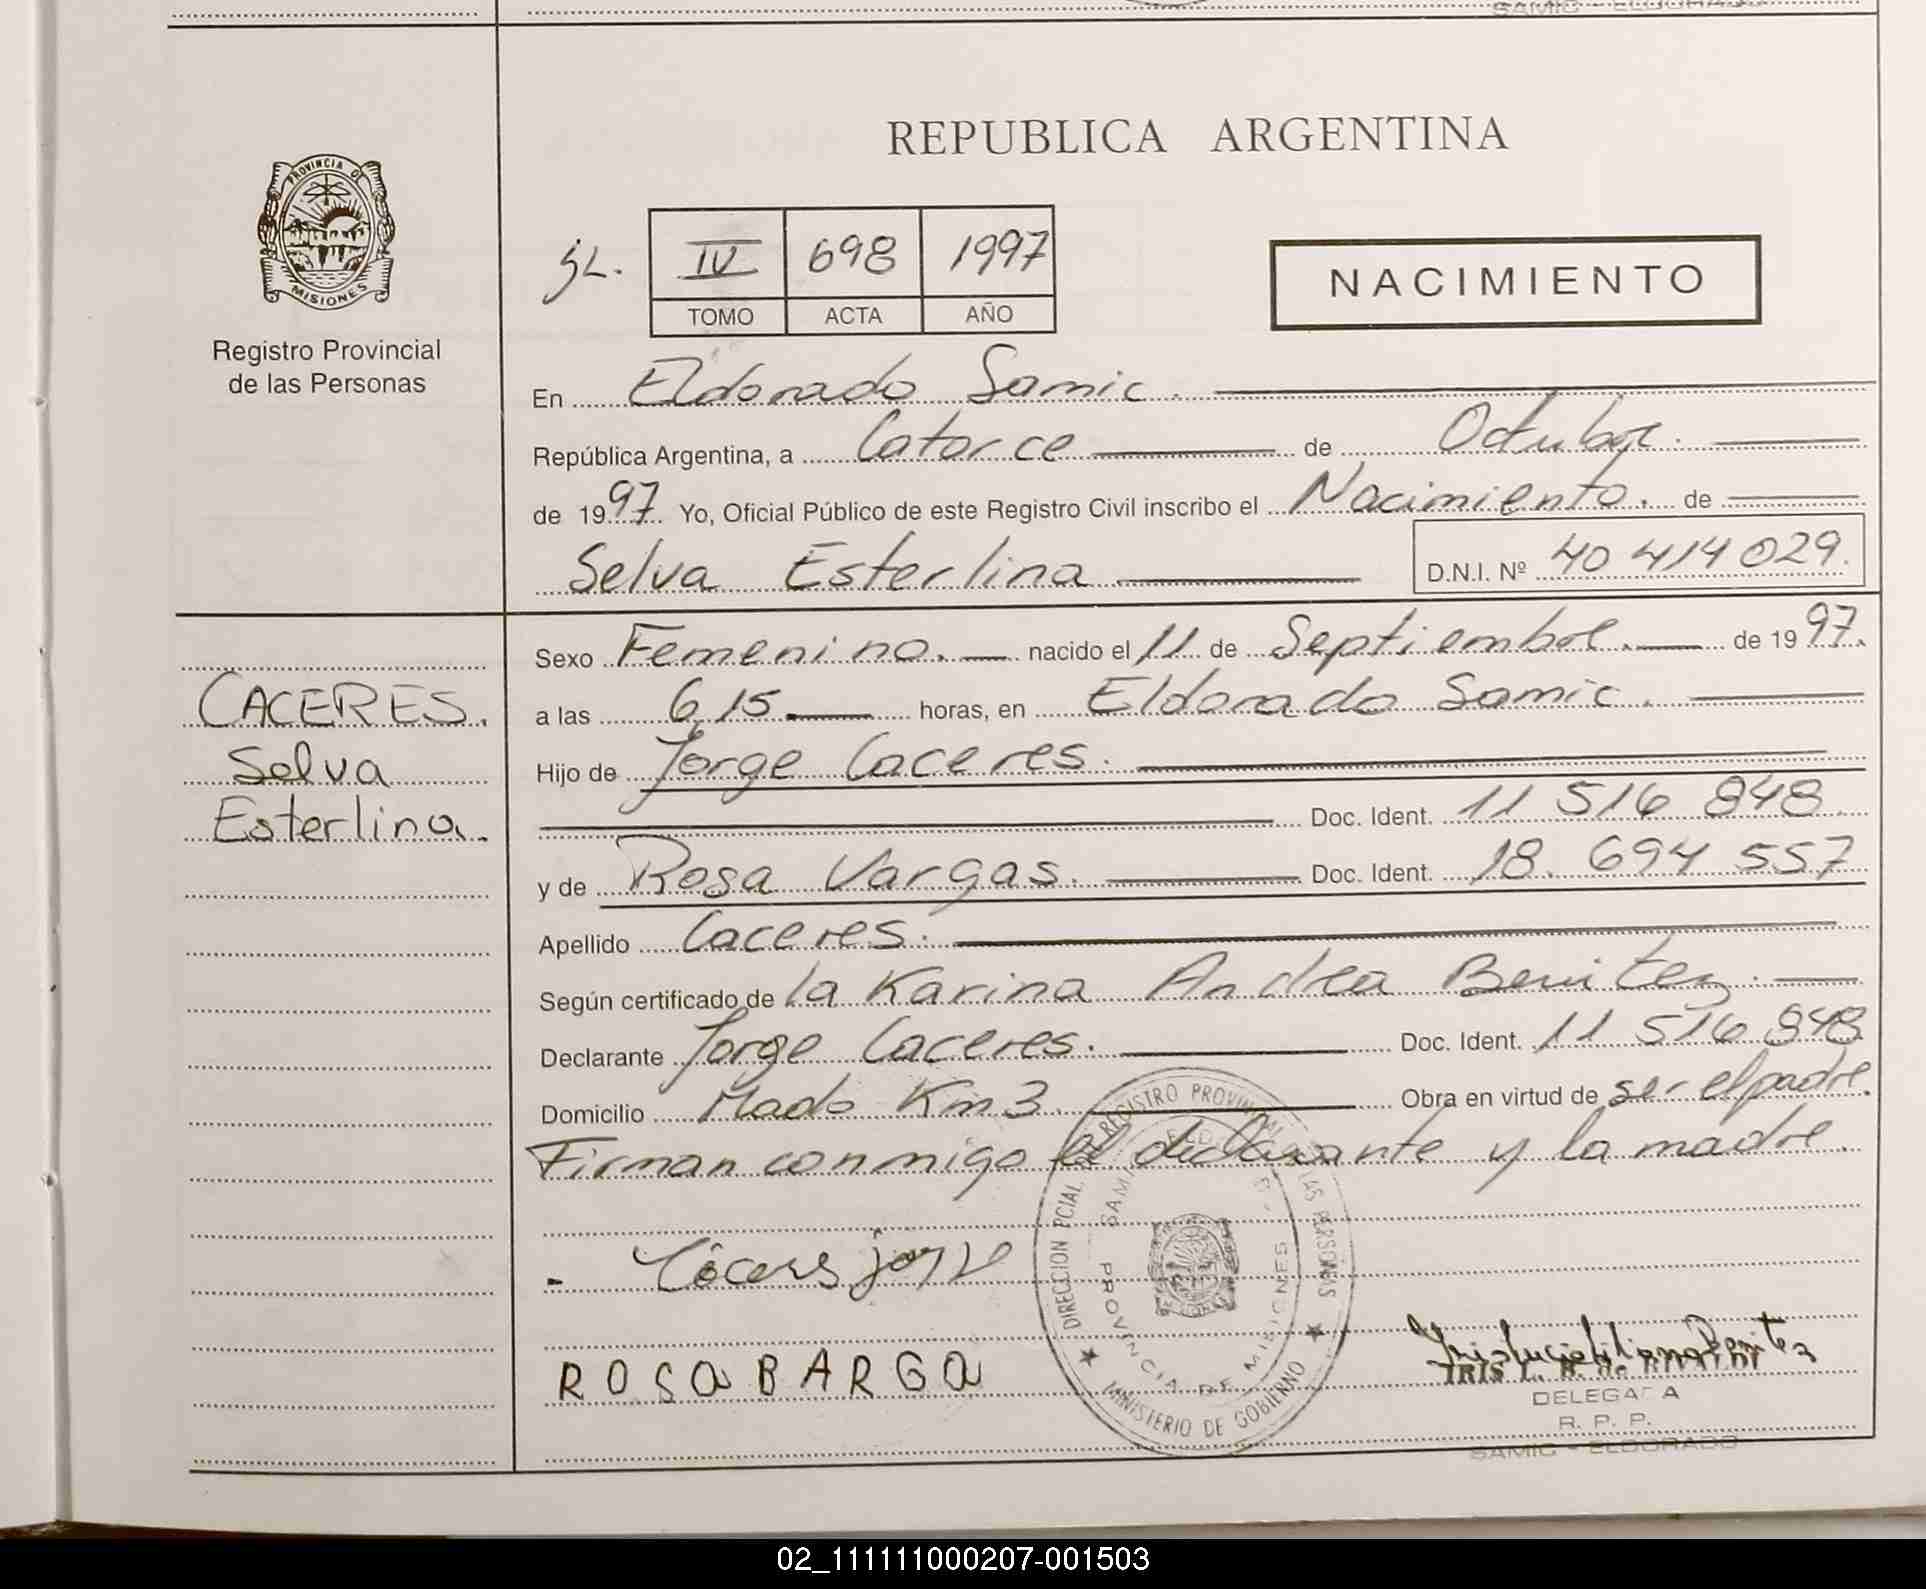 SAMIC - ELDORADO
REPUBLICA ARGENTINA
PROVINCIA DE
MISIONES
Registro Provincial
de las Personas
IV 698 1997
TOMO ACTA AÑO
NACIMIENTO
En Eldorado Samic.
República Argentina, a Catorce de Octubre.
de 1997. Yo, Oficial Público de este Registro Civil inscribo el Nacimiento. de
Selva Esterlina D.N.I. Nº 40 414 029.
Sexo Femenino. nacido el 11 de Septiembre. de 1997.
CACERES.
Selva
Esterlina.
a las 6,15 horas, en Eldorado Samic.
Hijo de Jorge Caceres.
Doc. Ident. 11 516 848.
y de Rosa Vargas. Doc. Ident. 18. 694 557
Apellido Caceres.
Según certificado de la Karina Andrea Benitez.
Declarante Jorge Caceres. Doc. Ident. 11 516 848
Domicilio Mado Km 3. Obra en virtud de ser el padre.
Firman conmigo el declarante y la madre.
DIRECCION PCIAL REGISTRO PROVINCIAL DE LAS PERSONAS
MINISTERIO DE GOBIERNO
PROVINCIA DE MISIONES
- Cáceres jorge
ROSA BARGA
DELEGADA
R. P. P.
SAMIC - ELDORADO
02_111111000207-001503